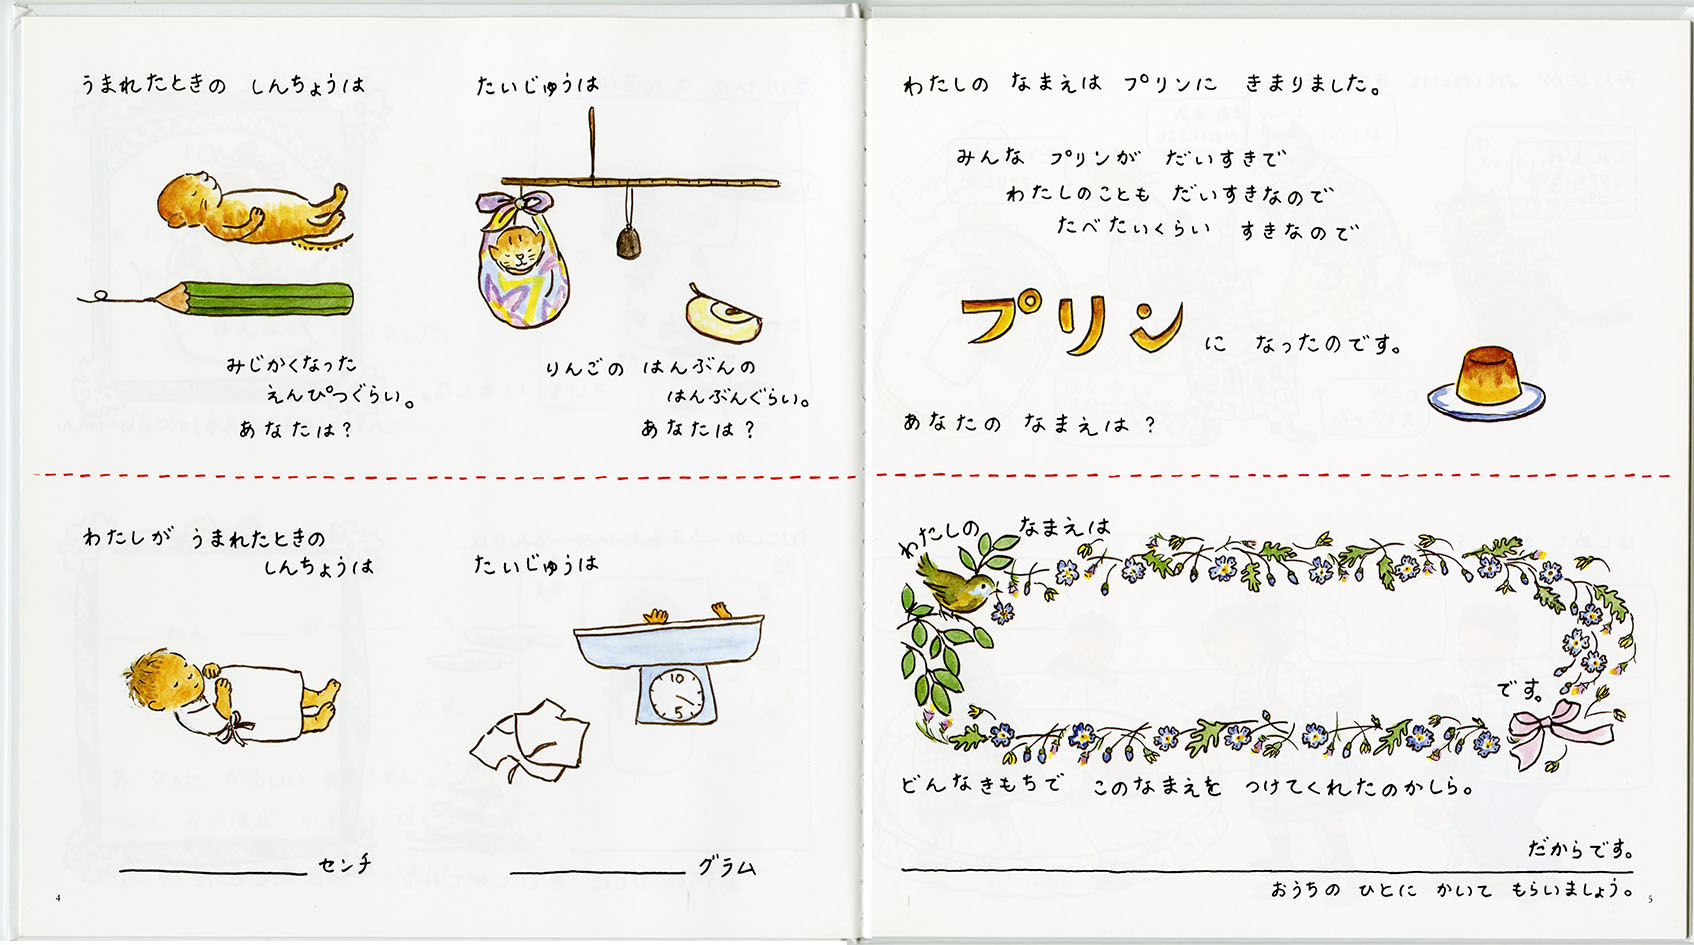 うまれたときの しんちょうは
みじかくなった
えんぴつぐらい。
あなたは?
たいじゅうは
りんごの はんぶんの
はんぶんぐらい。
あなたは?
わたしが うまれたときの
しんちょうは
センチ
たいじゅうは
10
5
グラム
4
わたしの なまえは プリンに きまりました。
みんな プリンが だいすきで
わたしのことも だいすきなので
たべたいくらい すきなので
プリンに なったのです。
あなたの なまえは?
わたしの なまえは
です。
どんなきもちで このなまえを つけてくれたのかしら。
だからです。
おうちの ひとに かいて もらいましょう。
5